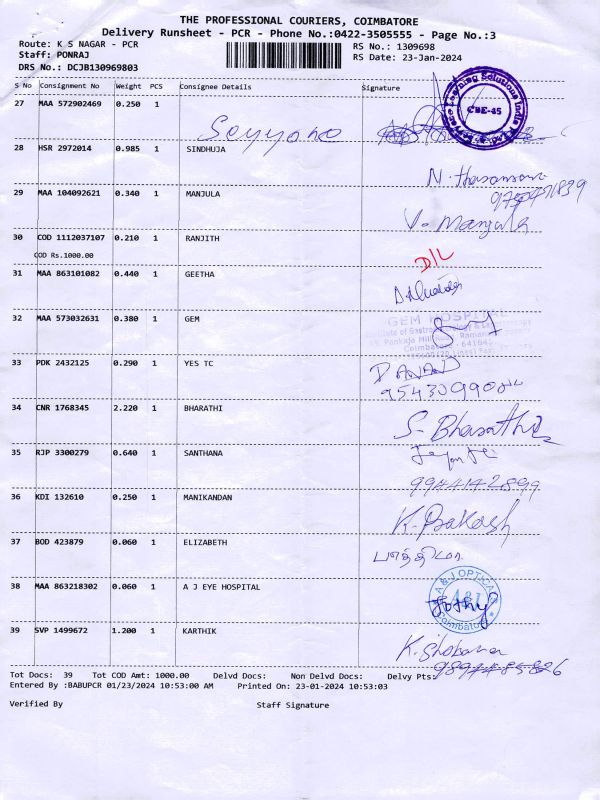 THE PROFESSIONAL COURIERS, COIMBATORE
Delivery Runsheet - PCR - Phone No.:0422-3505555 - Page No.:3
Route: K S NAGAR - PCR RS No.: 1309698
Staff: PONRAJ RS Date: 23-Jan-2024
DRS No.: DCJB130969803
S No Consignment No Weight PCS Consignee Details Signature
27 MAA 572902469 0.250 1
CBE-45
28 HSR 2972014 0.985 1 SINDHUJA
29 MAA 104092621 0.340 1 MANJULA
V. Manjula
30 COD 1112037107 0.210 1 RANJITH
COD Rs.1000.00
D/L
31 MAA 863101082 0.440 1 GEETHA
32 MAA 573032631 0.380 1 GEM
GEM HOSPITAL
Coimbatore
33 PDK 2432125 0.290 1 YES TC
34 CNR 1768345 2.220 1 BHARATHI
S. Bharathi
35 RJP 3300279 0.640 1 SANTHANA
9944142899
36 KDI 132610 0.250 1 MANIKANDAN
K. Prakash
37 BOD 423879 0.060 1 ELIZABETH
38 MAA 863218302 0.060 1 A J EYE HOSPITAL
A & J OPTICALS
A&J
Jothy
Coimbatore
39 SVP 1499672 1.200 1 KARTHIK
K. Shobana
Tot Docs: 39 Tot COD Amt: 1000.00 Delvd Docs: Non Delvd Docs: Delvy Pts:
Entered By :BABUPCR 01/23/2024 10:53:00 AM Printed On: 23-01-2024 10:53:03
Verified By Staff Signature